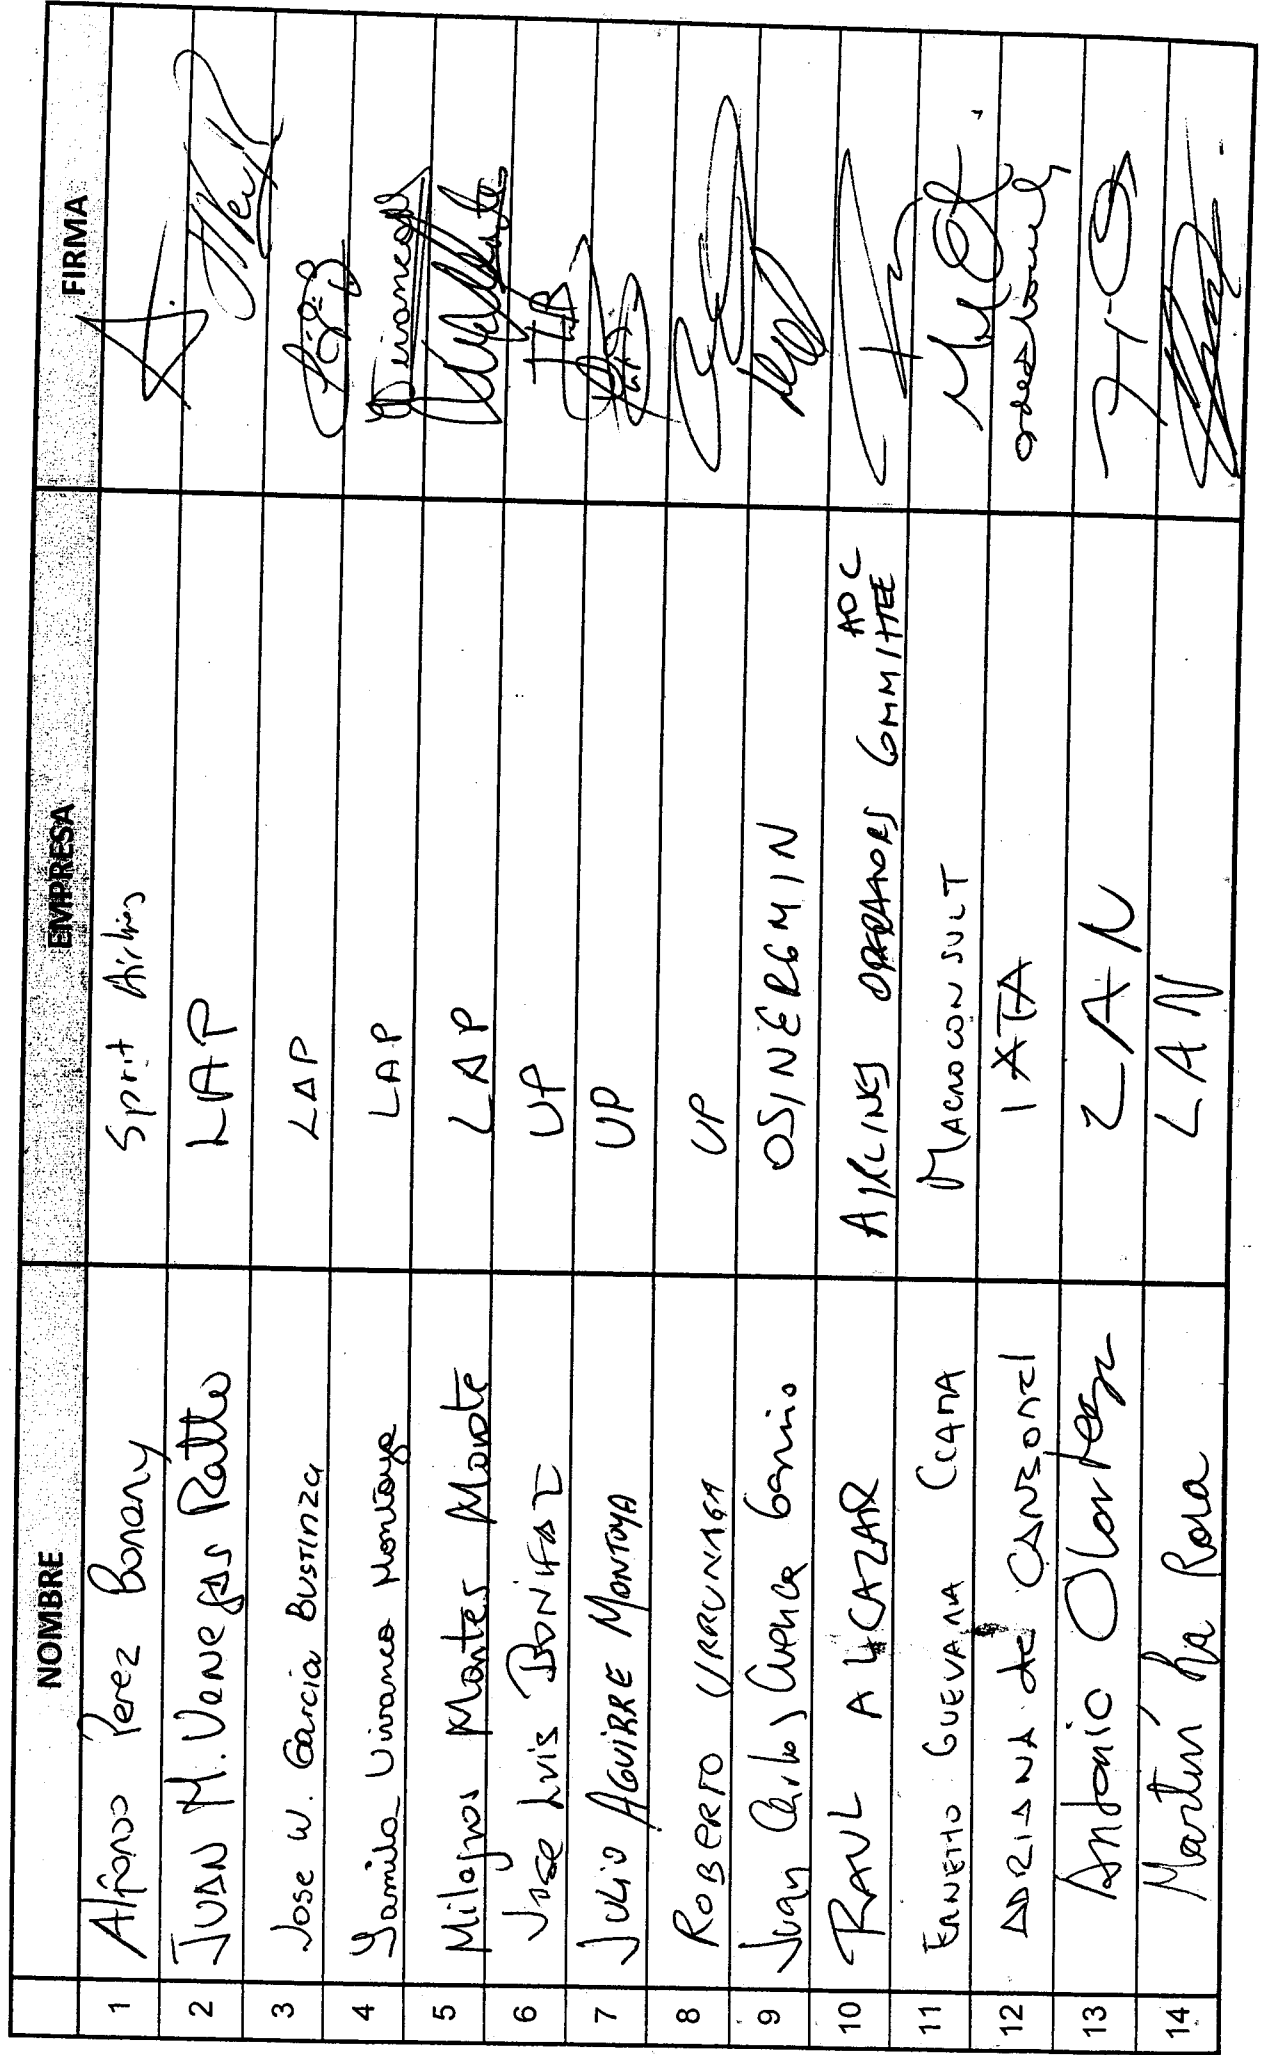 NOMBRE EMPRESA FIRMA
1 Alfonso Perez Bonany Sprit Airlines
2 JUAN M. VENEGAS Ratto LAP
3 Jose W. Garcia Bustinza LAP
4 Yamila Vivanco Montoya LAP Vivanco
5 Milagros Montes Morote LAP
6 Jose Luis BONIFAZ UP
7 JULIO AGUIRRE MONTOYA UP
8 ROBERTO URRUNAGA UP
9 Juan Carlos Cuenca OSINERGMIN
AOC
10 RAUL ALCAZAR AIRLINES OPERATORS COMMITTEE
11 ERNESTO GUEVARA CCAMA MACROCONSULT
12 ADRIANA de IATA
13 Antonio Olortegui LAN
14 Martín La Rosa LAN